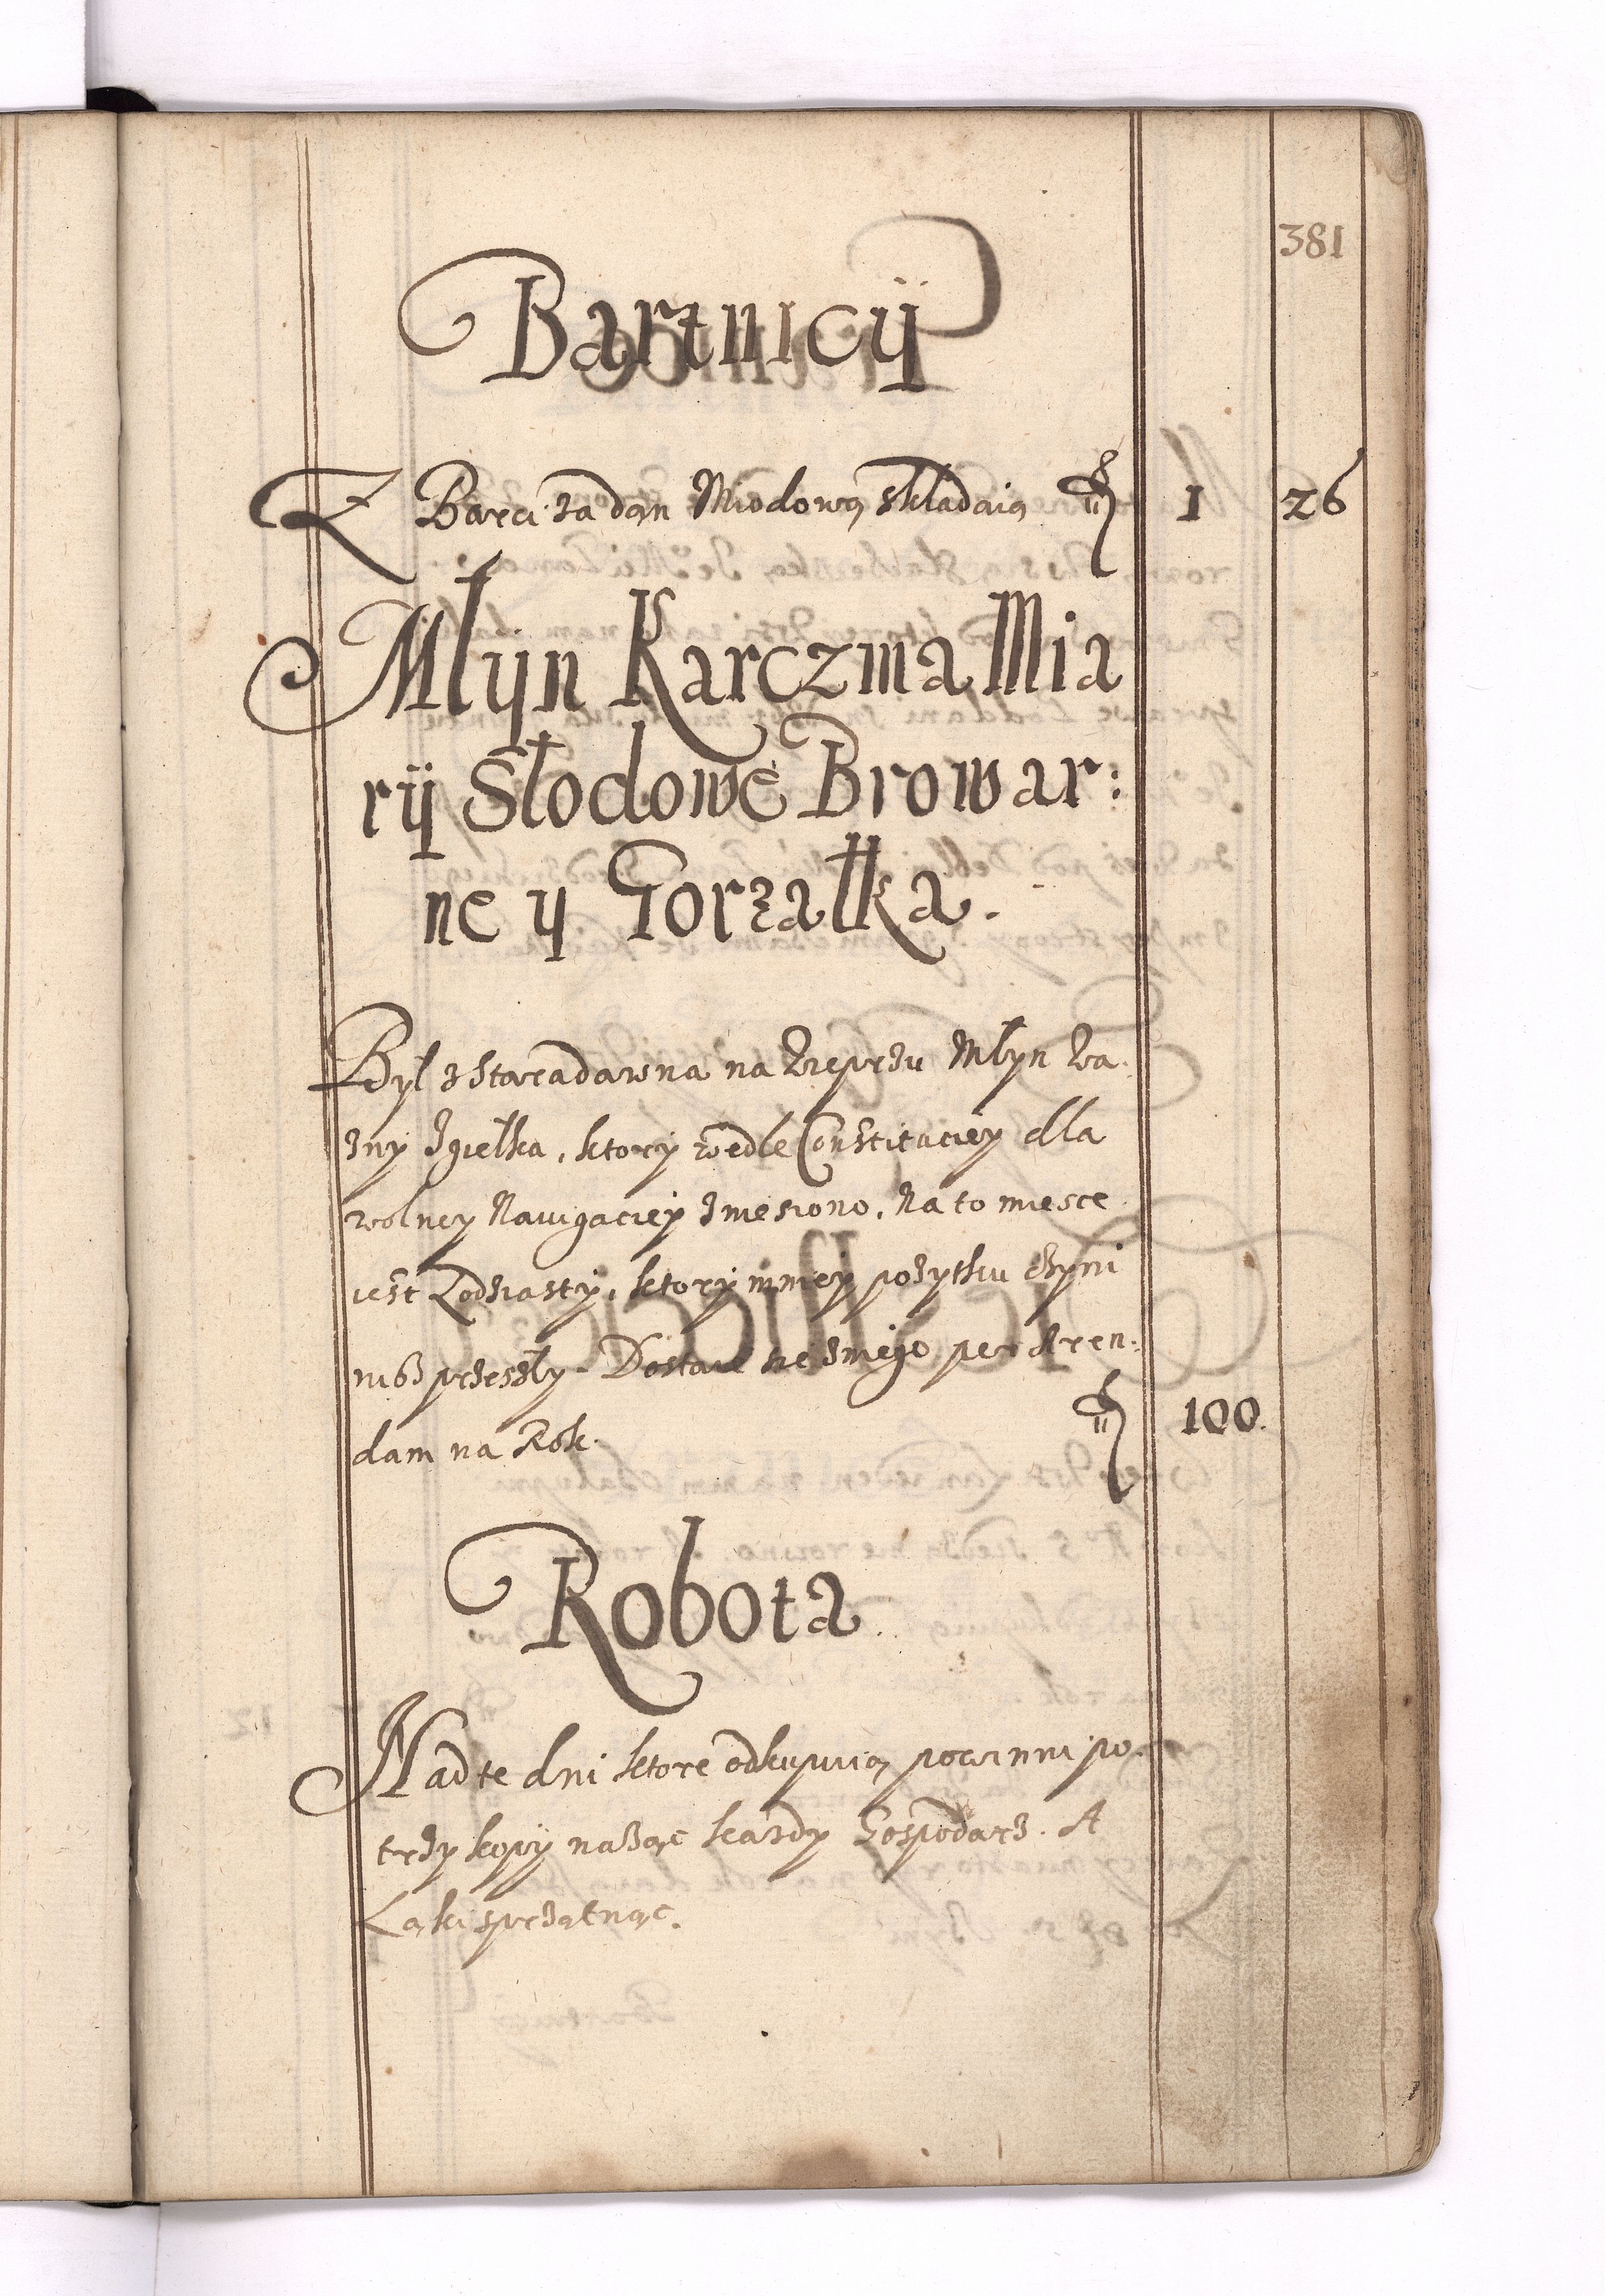 381
Bartnicÿ
Z Barci za dąn Miodową składaią fl 1 26
Młÿn Karczma Mia
rÿ Słodowe Browar:
ne ÿ Gorzałka.
Był z staradawna na Wieprzu Młyn Wa
zny Zgiełka, ktory wedle Constituciey dla
wolney Nawigaciey zniesiono, Na to miesce
iest Łodziasty, ktory mniey pozytku czyni
nisz przeszły. Dostaie się z niego per Aren:
dam na Rok. fl 100.
Robota
Nad te dni ktore odkupuią powinni po
trzy kopy nażąc kazdy Gospodarz. A
Łąki sprzątnąc.